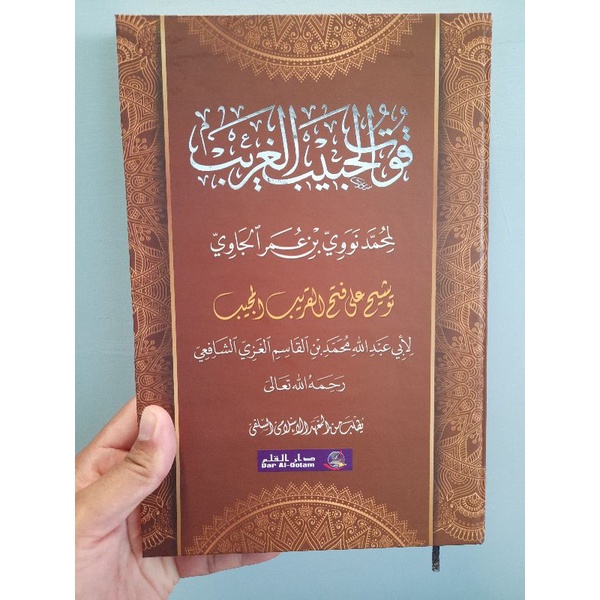 قُوتُ الْحَبِيْبِ الْغَرِيْبِ
لِمُحَمَّد نَوَوِيّ بْن عُمَر الْجَاوِيّ
توشيح على فتح القريب المجيب
لِأَبِي عَبْدِ اللهِ مُحَمَّد بْنِ الْقَاسِمِ الْغَزِّي الشَّافِعِيّ
رَحِمَهُ اللهُ تَعَالَى
يطلب من المعهد الإسلامى السلفى
دار القلم
Dar Al-Qolam